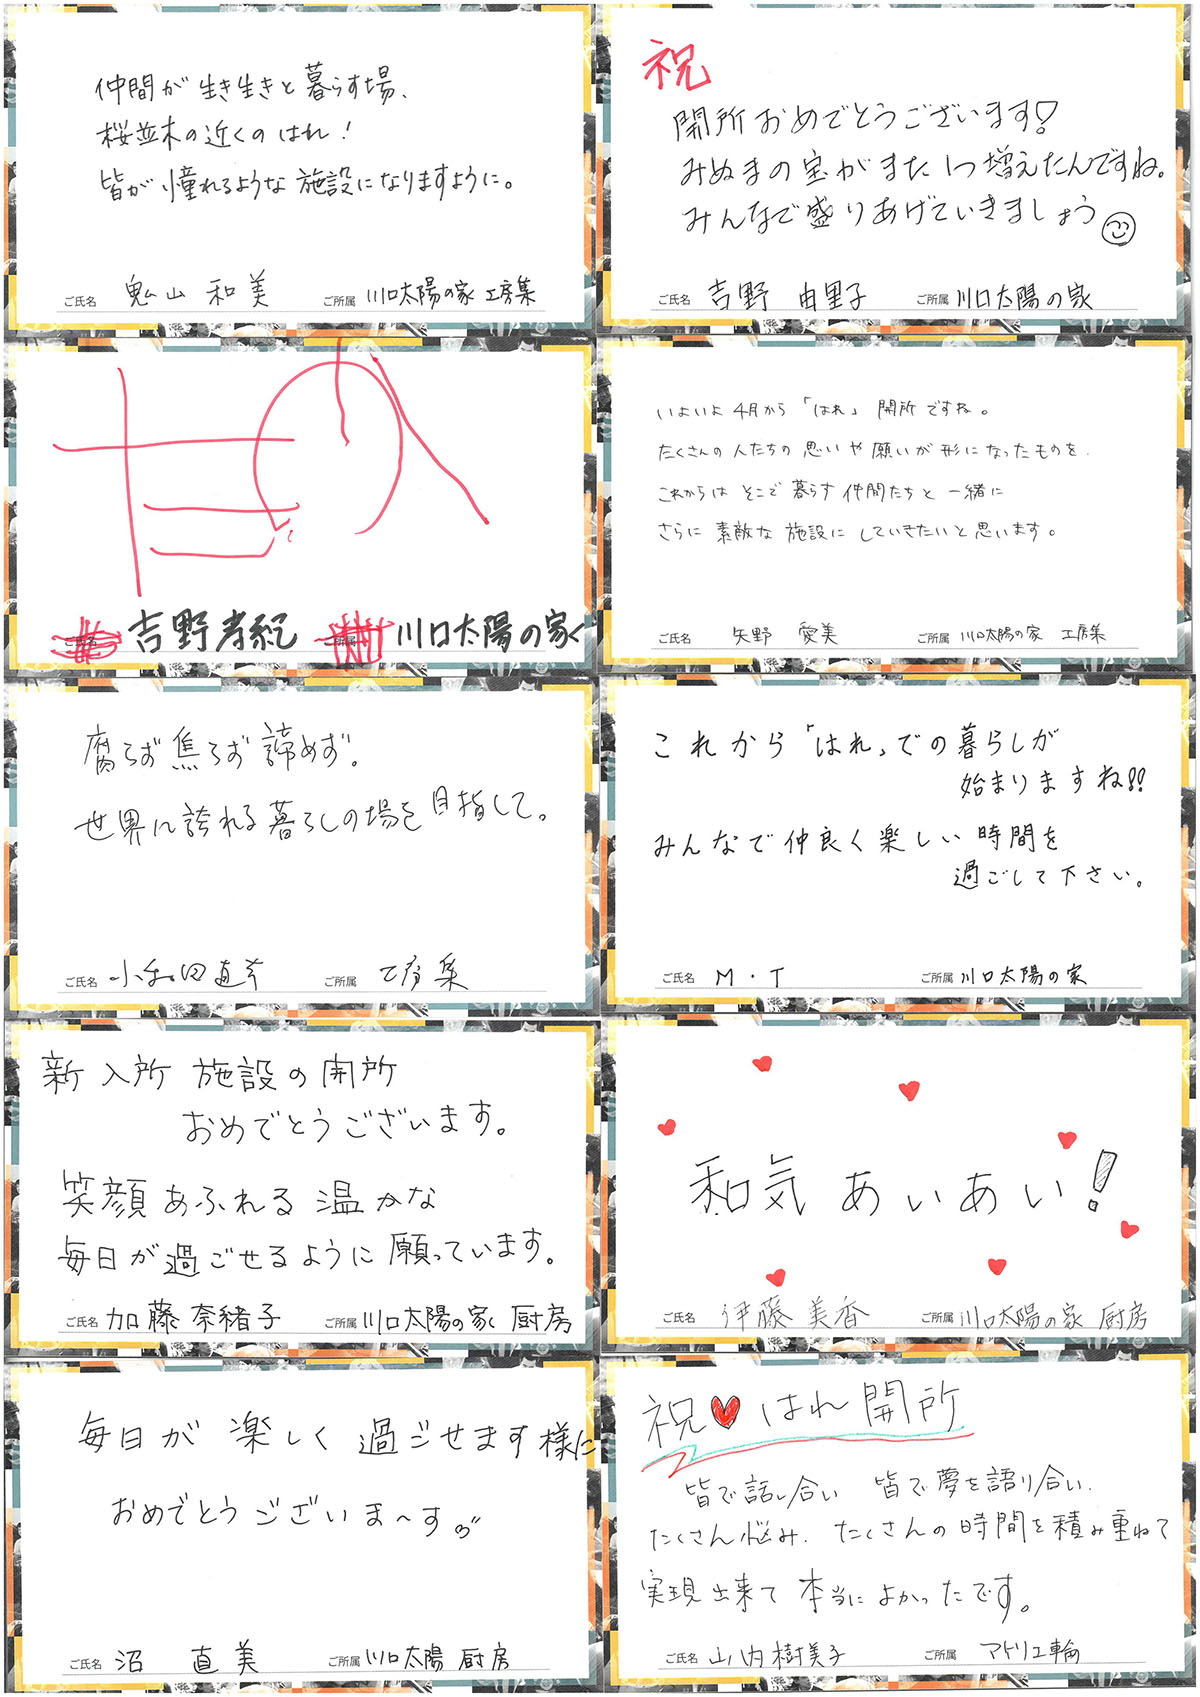 仲間が生き生きと暮らす場、
桜並木の近くのはれ!
皆が憧れるような施設になりますように。
ご氏名 鬼山 和美 ご所属 川口太陽の家 工房集
祝
開所おめでとうございます!
みぬまの宝がまた1つ増えたんですね。
みんなで盛りあげていきましょう
ご氏名 吉野 由里子 ご所属 川口太陽の家
吉野孝紀 川口太陽の家
いよいよ4月から「はれ」開所ですね。
たくさんの人たちの思いや願いが形になったものを、
これからはそこで暮らす仲間たちと一緒に
さらに素敵な施設にしていきたいと思います。
ご氏名 矢野 愛美 ご所属 川口太陽の家 工房集
腐らず焦らず諦めず。
世界に誇れる暮らしの場を目指して。
ご氏名 小和田直幸 ご所属 工房集
これから「はれ」での暮らしが
始まりますね!!
みんなで仲良く楽しい時間を
過ごして下さい。
ご氏名 M・T ご所属 川口太陽の家
新入所施設の開所
おめでとうございます。
笑顔あふれる温かな
毎日が過ごせるように願っています。
ご氏名 加藤奈緒子 ご所属 川口太陽の家 厨房
和気あいあい!
ご氏名 伊藤美香 ご所属 川口太陽の家 厨房
毎日が楽しく過ごせます様に
おめでとうございま〜す
ご氏名 沼 直美 ご所属 川口太陽 厨房
祝♥はれ開所
皆で話し合い 皆で夢を語り合い、
たくさん悩み、たくさんの時間を積み重ねて
実現出来て本当によかったです。
ご氏名 山内樹美子 ご所属 アトリエ輪